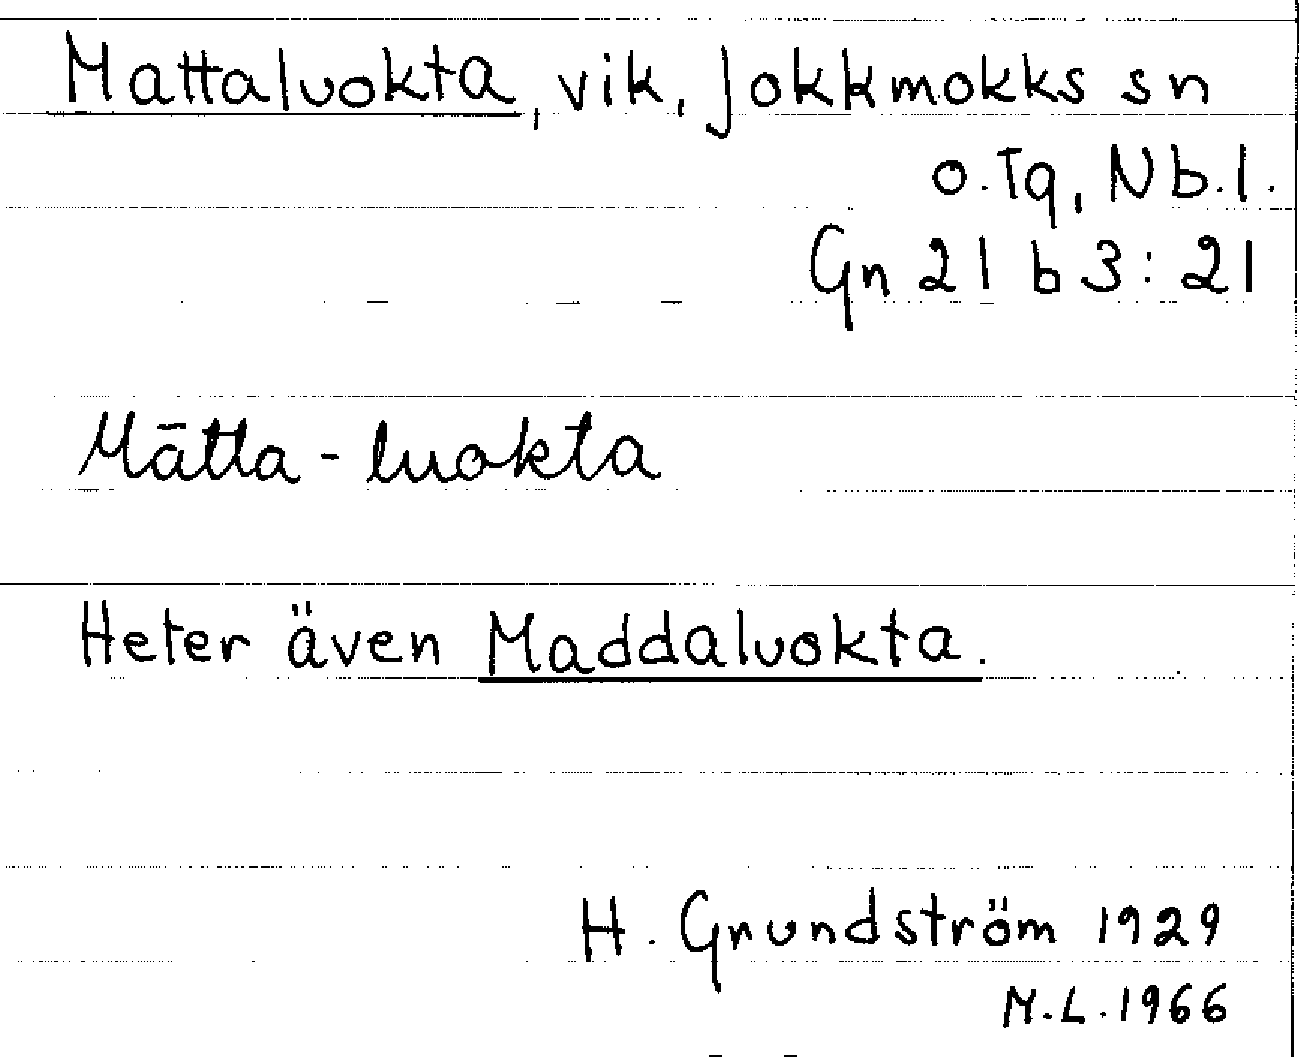 Mattaluokta, vik, Jokkmokks sn
o. Tg, Nb.l.
Gn 21 b 3:21
Mātta-luokta
Heter även Maddaluokta.
H. Grundström 1929
M.L. 1966